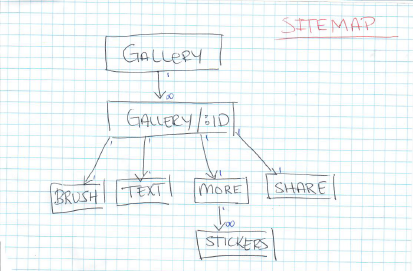 SITEMAP
GALLERY
1
∞
GALLERY/:ID
1 1 1 1
1 1 1 1
BRUSH TEXT MORE SHARE
1
∞
STICKERS